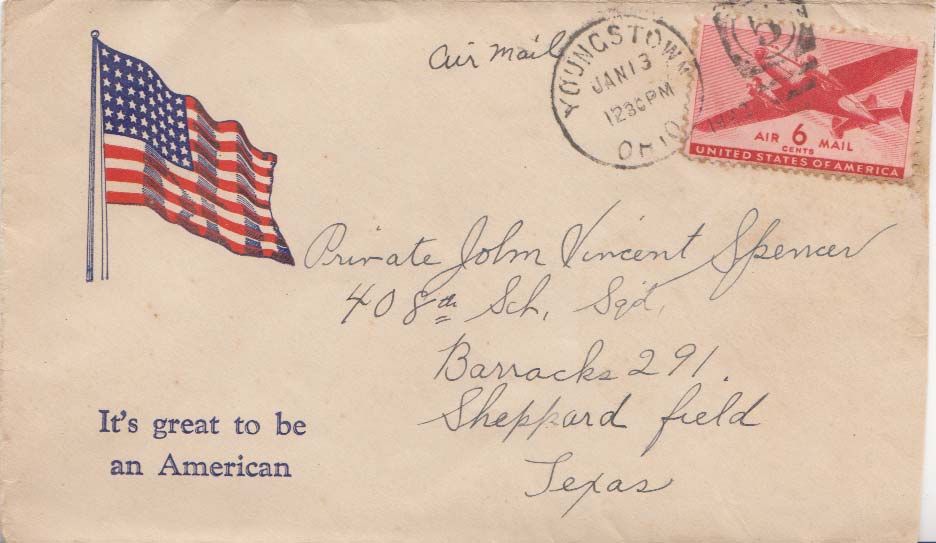 Air Mail
YOUNGSTOWN
JAN 13
1230PM
OHIO
AIR 6 MAIL
CENTS
UNITED STATES OF AMERICA
Private John Vincent Spencer
408th Sch, Sqd,
Barracks 291.
Sheppard field
Texas
It's great to be
an American